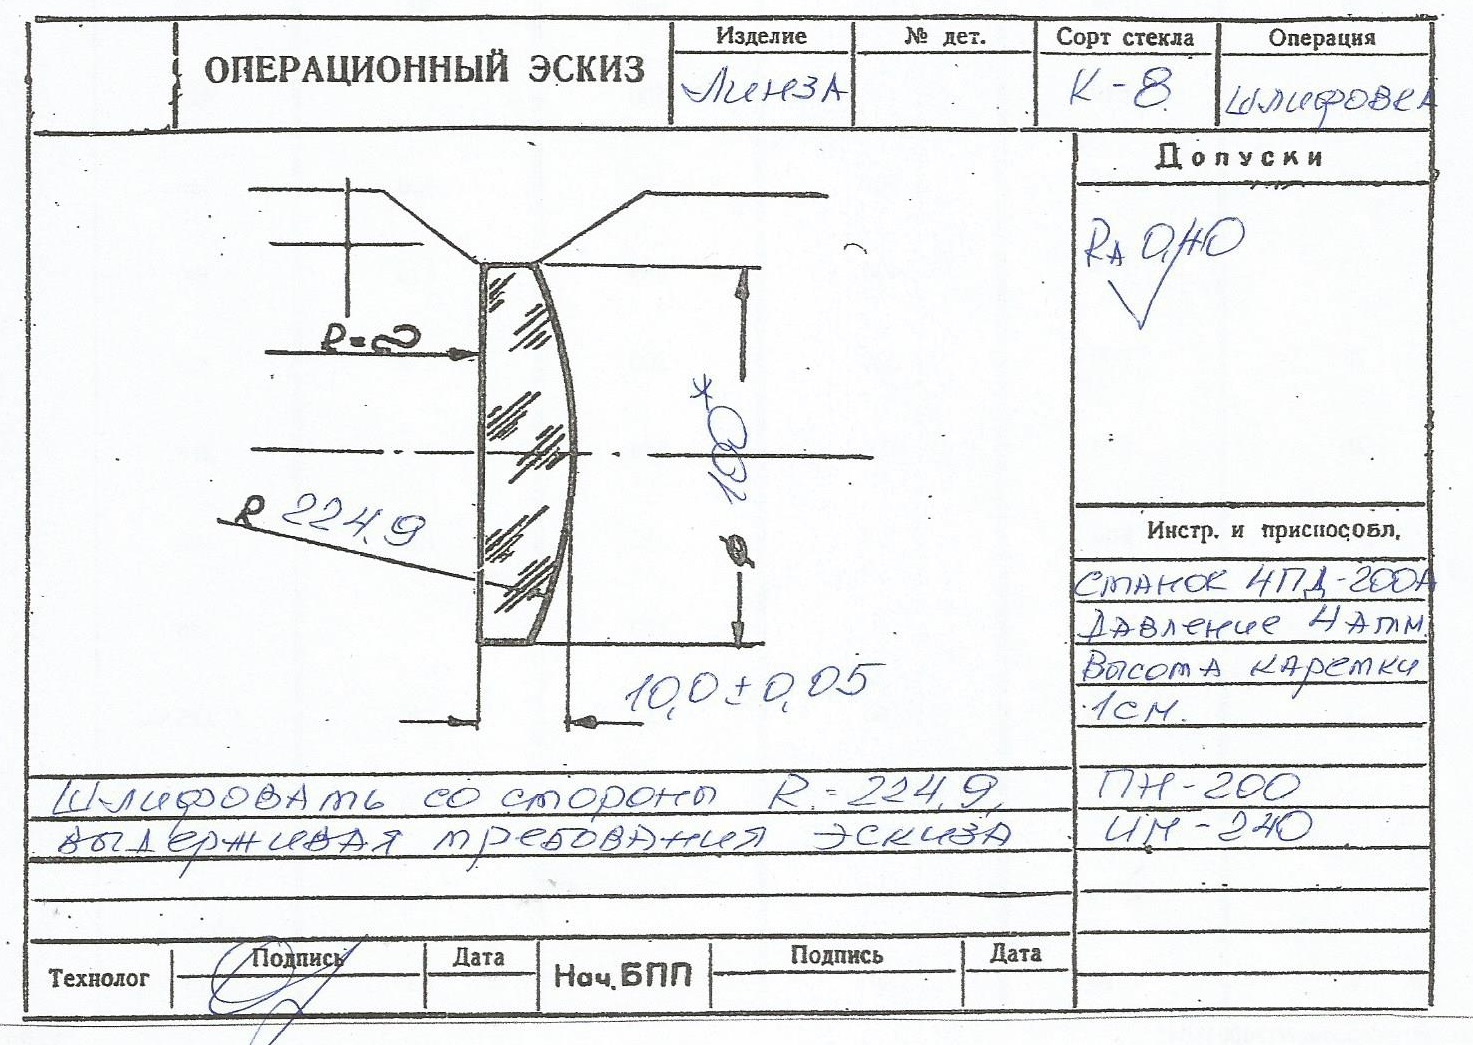 ОПЕРАЦИОННЫЙ ЭСКИЗ
Изделие
Линза
№ дет.
Сорт стекла
К-8
Операция
Шлифовка
Допуски
RA 0,40
R=∞
R 224.9
⌀ 100*
10,0±0,05
Инстр. и приспособл.
Станок 4ПД-200А
Давление 4 атм.
Высота каретки
1 см.
ПН-200
ИМ-240
Шлифовать со стороны R=224.9,
выдерживая требования эскиза
Технолог
Подпись
Дата
Нач. БПП
Подпись
Дата